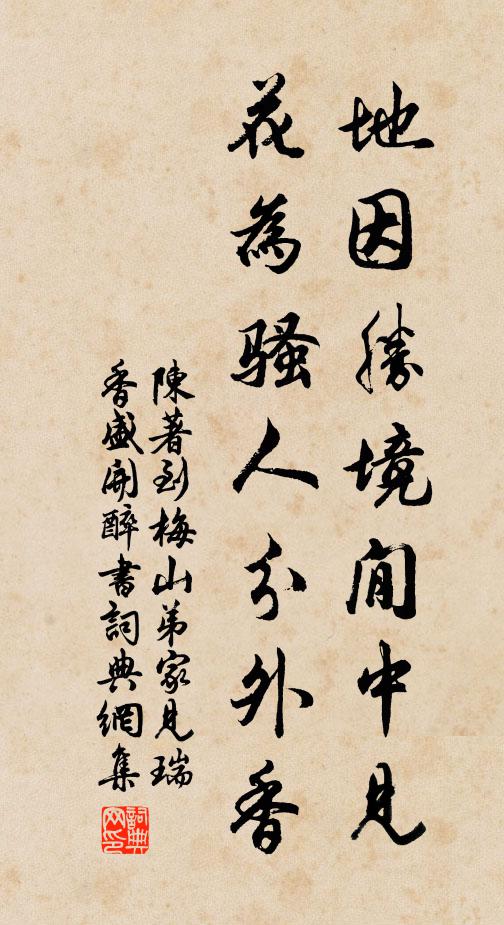 地因勝境閒中見
花為騷人分外香
陳著到梅山弟家見瑞
香盛開醉書詞典網集
詞典网印